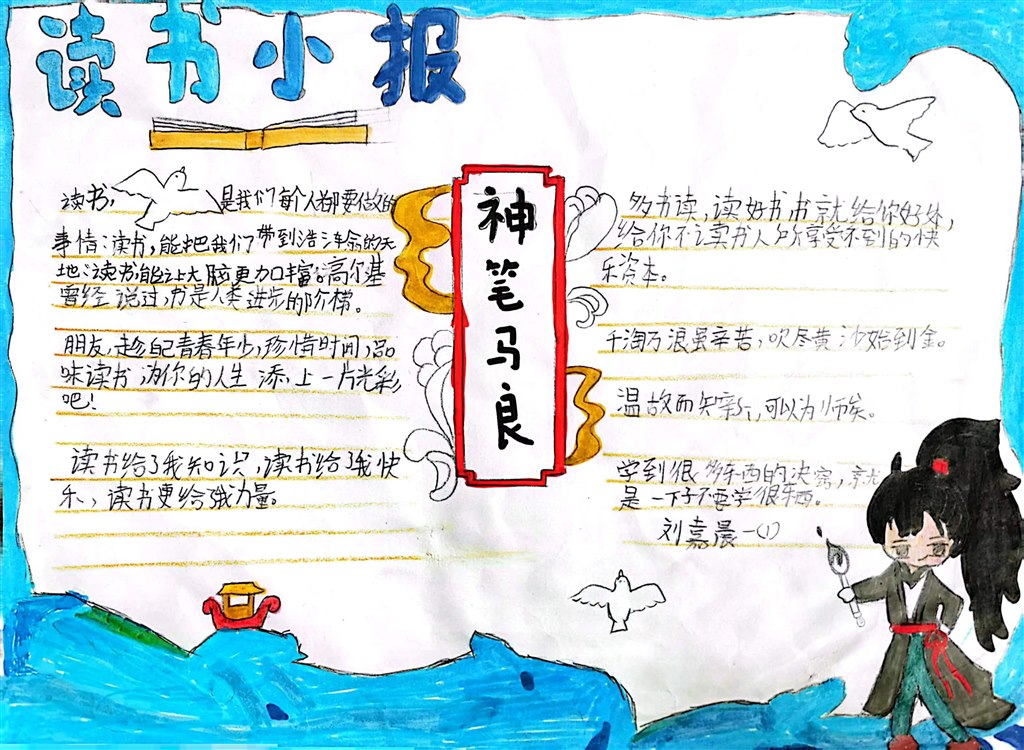 读书小报
读书,是我们每个人都要做的
事情:读书,能把我们带到浩瀚的天
地:读书能让大脑更加丰富。高尔基
曾经说过,书是人类进步的阶梯。
朋友,趁自己青春年少,珍惜时间,品
味读书,为你的人生添上一片光彩
吧!
读书给了我知识,读书给了我快
乐,读书更给我力量。
神笔马良
多书读,读好书书就给你好处,
给你不读书人所享受不到的快
乐资本。
千淘万浪虽辛苦,吹尽黄沙始到金。
温故而知新,可以为师矣。
学到很多东西的决窍,就
是一下子不要学很东西。
刘嘉晨一(1)